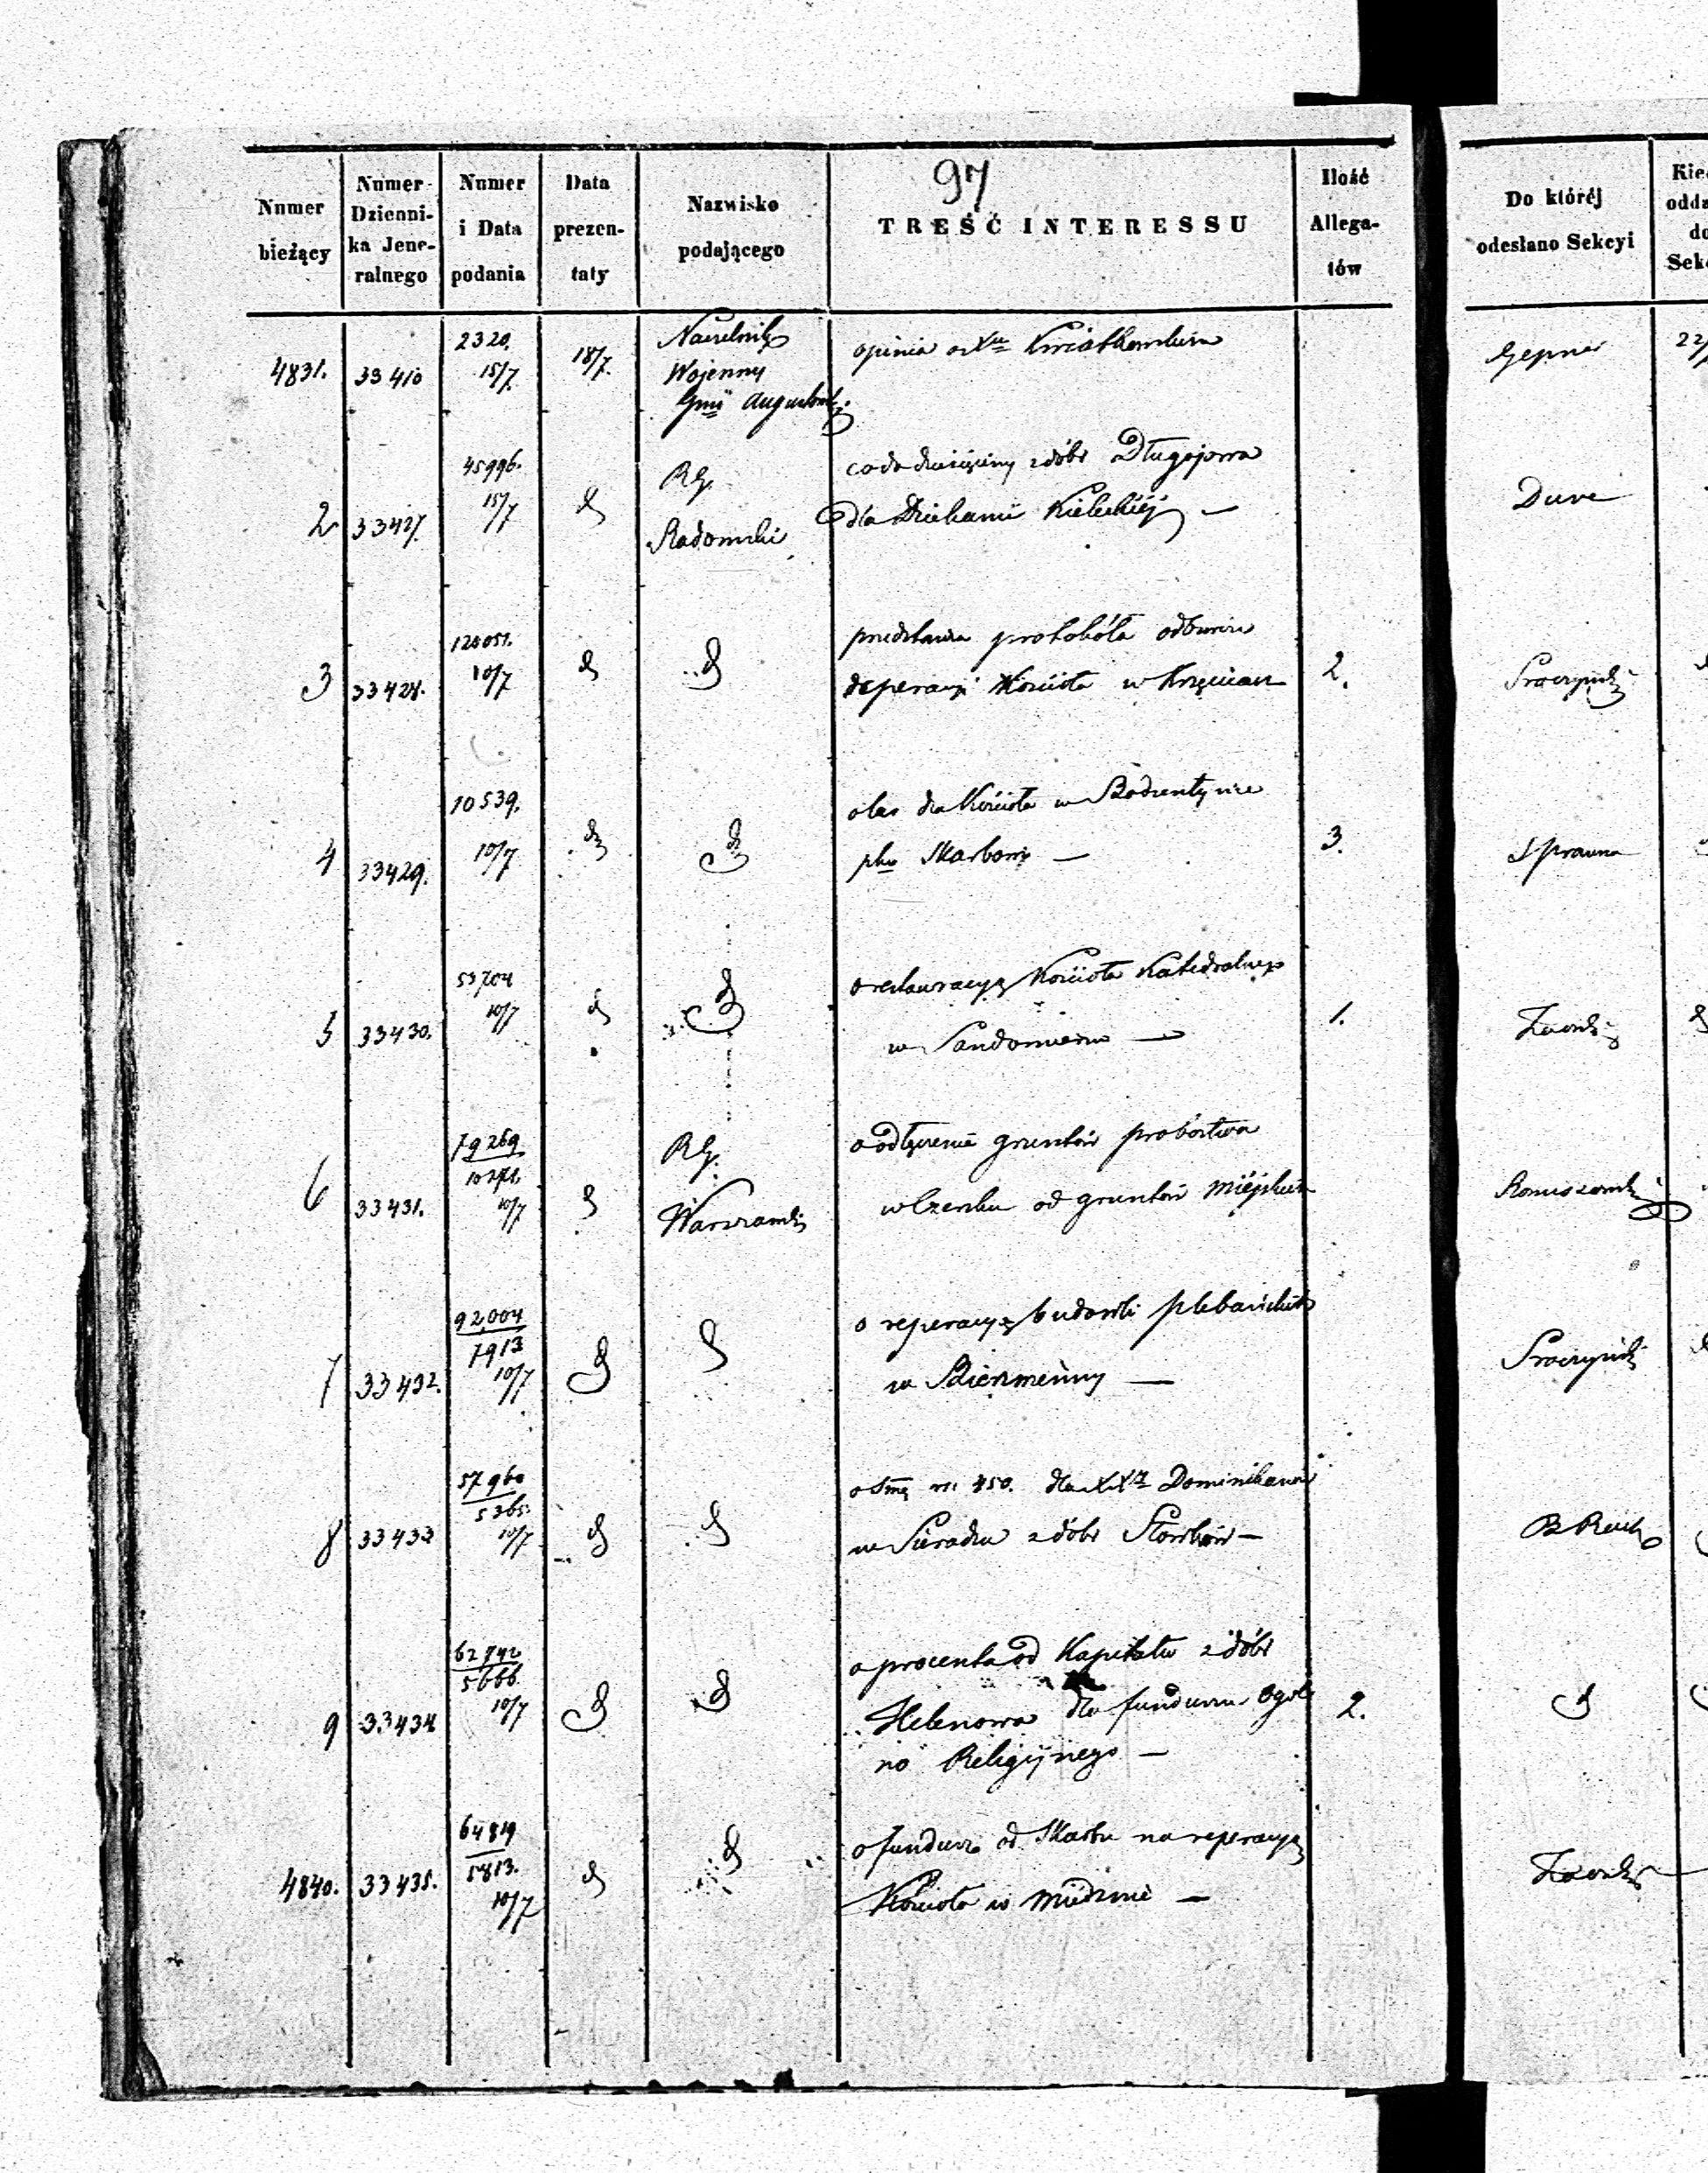 97
Numer bieżący
Numer Dzienni- ka Jene- ralnego
Numer i Data podania
Data prezen- taty
Nazwisko podającego
TREŚĆ INTERESSU
Ilość Allega- tów
Do któréj odesłano Sekcyi
4831. 33410 2320. 15/7 18/7. Naczelnik
Wojenny
opinia o Kwiatkowskim
Gepner 22/
2 33427. 45996. 15/7 RG.
Radomski
co do dziesięciny z dóbr Długojowa
dla Dziekanii Kieleckiéj —
Duve
3 33428. 120051. 10/7
protokóła odbioru
reperacyi Kościoła w
2.
4 33429. 10539. 10/7
o las dla Kościoła w Bodzentynie
Skarbowi —
3.
Sprawna
5 33430. 53704 10/7
o restauracyą Kościoła Katedralnego
w Sandomierzu —
1.
6 33431. 79269 10271. 10/7 RG.
Warszawski
o odłączenie gruntów probostwa
w Czersku od gruntów Miejskich
7 33432. 92,004 7913 10/7
o reperacyą budowli plebańskich
w Bierzmienny —
8 33433 57960 5365. 10/7
o Smę rs. 450. dla XX Dominikanów
w Sieradzu z dóbr —
9 33434 62742 5666. 10/7
o procenta od Kapitału z dóbr
Helenowa dla funduszu Ogól
no Religijnego —
2.
4840. 33435. 64819 5813. 10/7
o fundusz od Skarbu na reperacyą
Kościoła w Miedznie —